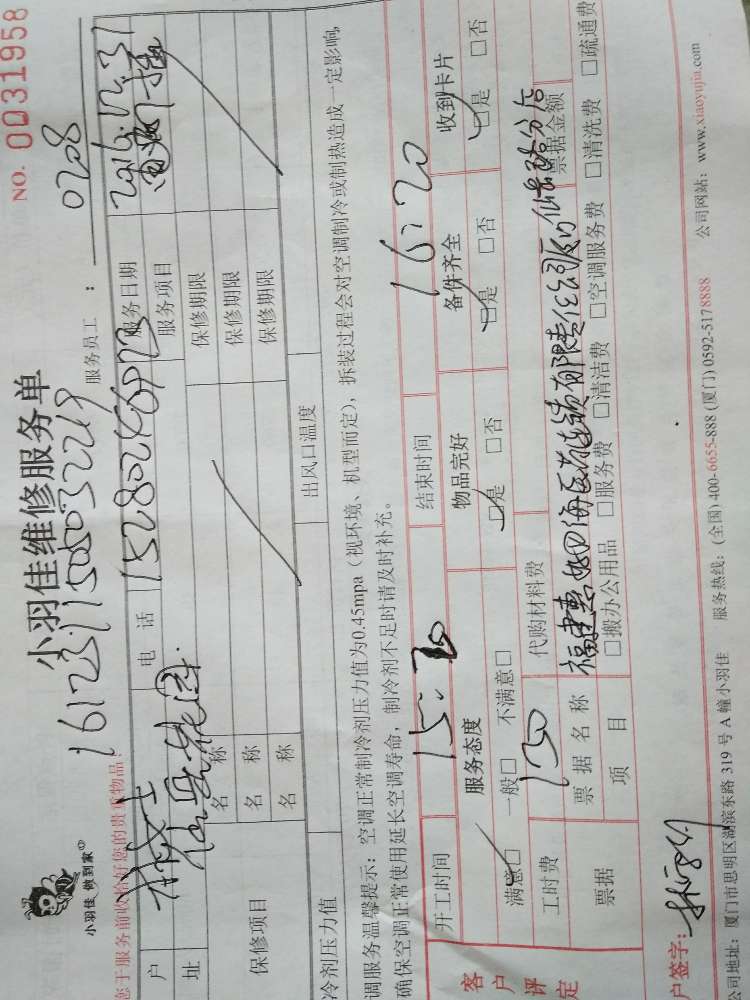 小羽佳 做到家
小羽佳维修服务单
NO. 0031958
1612311505032219
服务员工： 0208
您于服务前收拾好您的贵重物品！
户 林女士 电 话 服务日期 2016.12.31
址 服务项目
保修项目
名 称 保修期限
名 称 保修期限
名 称 保修期限
冷剂压力值 出风口温度
调服务温馨提示：空调正常制冷剂压力值为0.45mpa（视环境、机型而定），拆装过程会对空调制冷或制热造成一定影响，
确保空调正常使用延长空调寿命，制冷剂不足时请及时补充。
客户评定
开工时间 15:30 结束时间 16:20
服务态度 物品完好 备件齐全 收到卡片
满意□ 一般□ 不满意□ □是 □否 □是 □否 □是 □否
工时费 130 代购材料费 票据金额
票据 票据名称 福建惠好四海医药连锁有限责任公司厦门仙岳路分店
项 目 □搬办公用品 □服务费 □清洁费 □空调服务费 □清洗费 □疏通费
户签字：
公司地址：厦门市思明区湖滨东路 319 号 A 幢小羽佳 服务热线：(全国) 400-6655-888 (厦门) 0592-5178888 公司网站：www.xiaoyujia.com